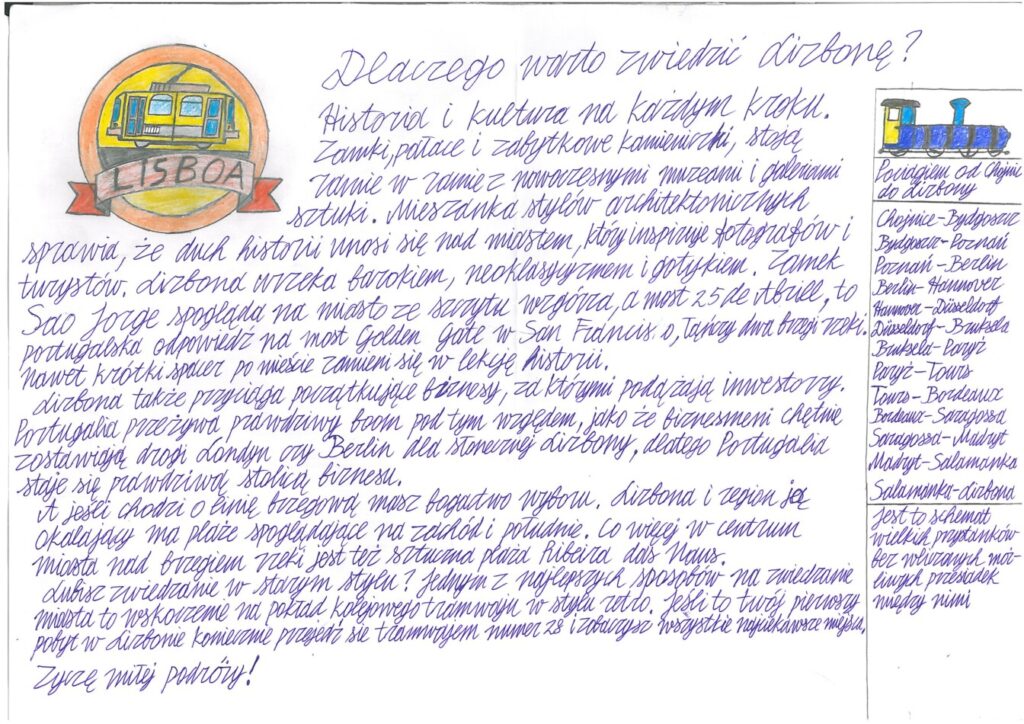 LISBOA
Dlaczego warto zwiedzić Lizbonę?
Historia i kultura na każdym kroku.
Zamki, pałace i zabytkowe kamieniczki, stoją
ramię w ramię z nowoczesnymi muzeami i galeriami
sztuki. Mieszanka stylów architektonicznych
sprawia, że duch historii unosi się nad miastem, który inspiruje fotografów i
turystów. Lizbona urzeka barokiem, neoklasycyzmem i gotykiem. Zamek
Sao Jorge spogląda na miasto ze szczytu wzgórza, a most 25 de Abril, to
portugalska odpowiedź na most Golden Gate w San Francisco, łączy dwa brzegi rzeki.
Nawet krótki spacer po mieście zamieni się w lekcję historii.
Lizbona także przyciąga początkujące biznesy, za którymi podążają inwestorzy.
Portugalia przeżywa prawdziwy boom pod tym względem, jako że biznesmeni chętnie
zostawiają drogi Londyn czy Berlin dla słonecznej Lizbony, dlatego Portugalia
staje się prawdziwą stolicą biznesu.
A jeśli chodzi o linię brzegową masz bogactwo wyboru. Lizbona i region ją
okalający ma plaże spoglądające na zachód i południe. Co więcej w centrum
miasta nad brzegiem rzeki jest też sztuczna plaża Ribeira das Naus.
Lubisz zwiedzanie w starym stylu? Jednym z najlepszych sposobów na zwiedzanie
miasta to wskoczenie na pokład kolejowego tramwaju w stylu retro. Jeśli to twój pierwszy
pobyt w Lizbonie koniecznie przejedź się tramwajem numer 28 i zobaczysz wszystkie najciekawsze miejsca.
Życzę miłej podróży!
Pociągiem od Chojnic
do Lizbony
Chojnice-Bydgoszcz
Bydgoszcz-Poznań
Poznań-Berlin
Berlin-Hannover
Hannover-Düsseldorf
Düsseldorf-Bruksela
Bruksela-Paryż
Paryż-Tours
Tours-Bordeaux
Bordeaux-Saragossa
Saragossa-Madryt
Madryt-Salamanka
Salamanka-Lizbona
Jest to schemat
wielkich przystanków
bez wliczanych moż-
liwych przesiadek
między nimi